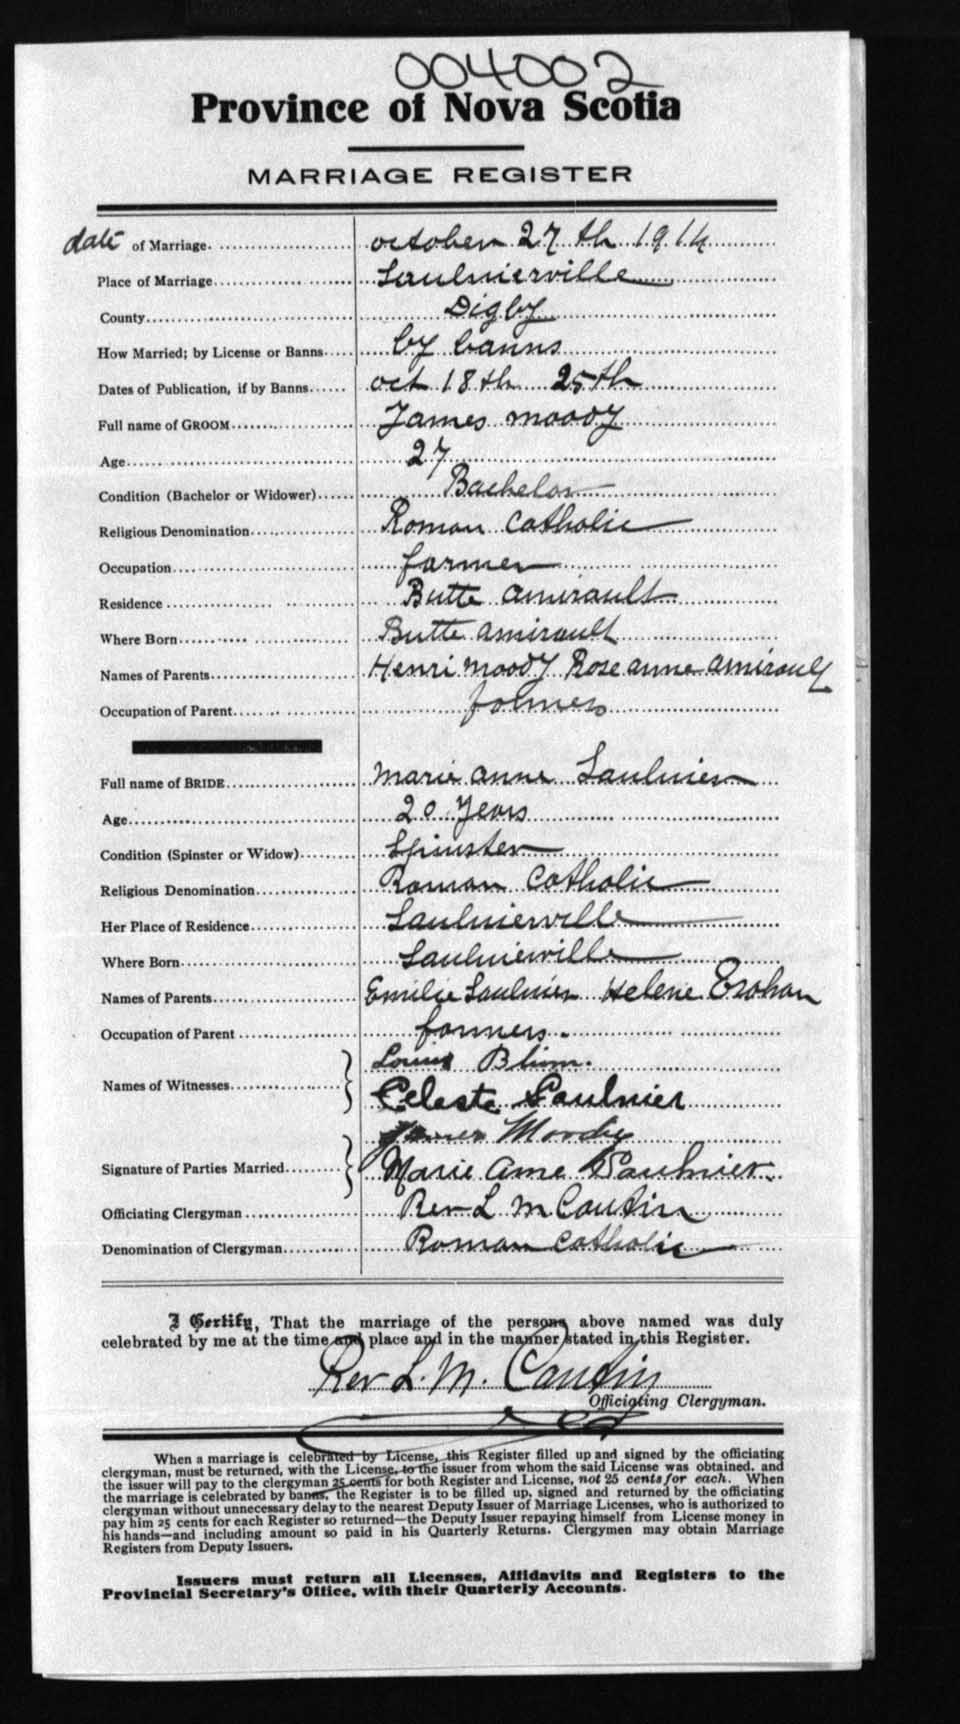 004002
Province of Nova Scotia
MARRIAGE REGISTER
date of Marriage october 27 th 1914
Place of Marriage Saulnierville
County Digby
How Married; by License or Banns by banns
Dates of Publication, if by Banns oct 18th 25th
Full name of GROOM James moody
Age 27
Condition (Bachelor or Widower) Bachelor
Religious Denomination Roman Catholic
Occupation farmer
Residence Butte amirault
Where Born Butte amirault
Names of Parents Henri moody Rose anne amirault
Occupation of Parent farmers
Full name of BRIDE Marie anne Saulnier
Age 20 Years
Condition (Spinster or Widow) Spinster
Religious Denomination Roman Catholic
Her Place of Residence Saulnierville
Where Born Saulnierville
Names of Parents Emilie Saulnier Helene
Occupation of Parent farmers.
Louis Blinn.
Names of Witnesses
Celeste Saulnier
James Moody
Signature of Parties Married Marie Anne Saulnier
Officiating Clergyman Rev L M
Denomination of Clergyman Roman Catholic
I Certify, That the marriage of the persons above named was duly
celebrated by me at the time and place and in the manner stated in this Register.
Rev L. M.
Officiating Clergyman.
When a marriage is celebrated by License, this Register filled up and signed by the officiating
clergyman, must be returned, with the License, to the issuer from whom the said License was obtained, and
the issuer will pay to the clergyman 25 cents for both Register and License, not 25 cents for each. When
the marriage is celebrated by banns, the Register is to be filled up, signed and returned by the officiating
clergyman without unnecessary delay to the nearest Deputy Issuer of Marriage Licenses, who is authorized to
pay him 25 cents for each Register so returned—the Deputy Issuer repaying himself from License money in
his hands—and including amount so paid in his Quarterly Returns. Clergymen may obtain Marriage
Registers from Deputy Issuers.
Issuers must return all Licenses, Affidavits and Registers to the
Provincial Secretary's Office, with their Quarterly Accounts.